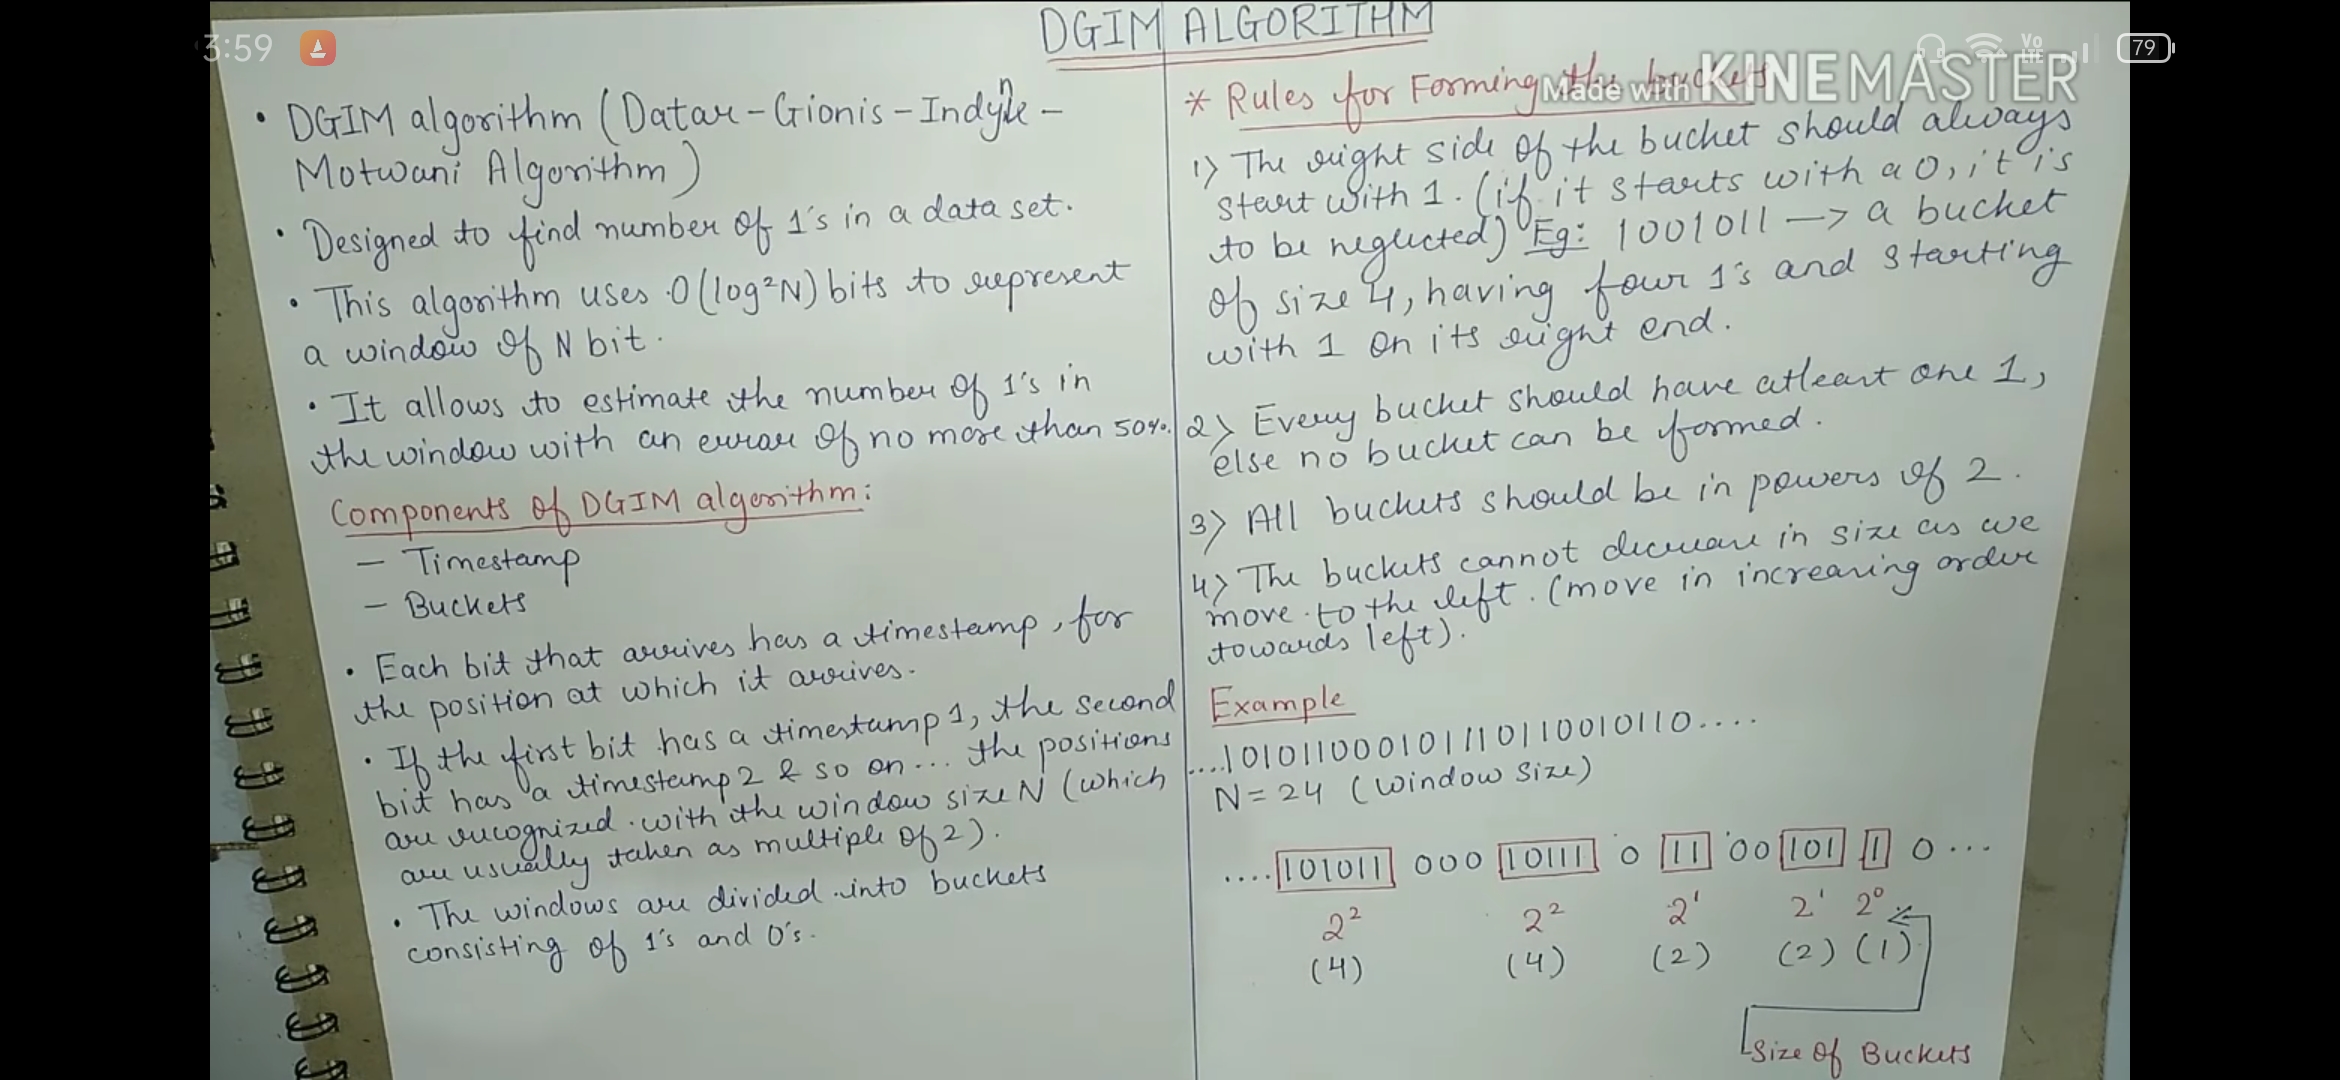 3:59
79
Made with KINEMASTER
DGIM ALGORITHM
• DGIM algorithm (Datar-Gionis-Indyk-
Motwani Algorithm)
• Designed to find number of 1's in a data set.
• This algorithm uses O(log²N) bits to represent
a window of N bit.
• It allows to estimate the number of 1's in
the window with an error of no more than 50%.
Components of DGIM algorithm:
– Timestamp
– Buckets
• Each bit that arrives has a timestamp, for
the position at which it arrives.
• If the first bit has a timestamp 1, the second
bit has a timestamp 2 & so on... the positions
are recognized with the window size N (which
are usually taken as multiple of 2).
• The windows are divided into buckets
consisting of 1's and 0's.
* Rules for Forming the buckets
1) The right side of the bucket should always
start with 1. (if it starts with a 0, it is
to be neglected) Eg: 1001011 —> a bucket
of size 4, having four 1's and starting
with 1 on its right end.
2) Every bucket should have atleast one 1,
else no bucket can be formed.
3) All buckets should be in powers of 2.
4) The buckets cannot decrease in size as we
move to the left. (move in increasing order
towards left).
Example
....101011000101110110010110....
N = 24 (window size)
....101011 000 10111 0 11 00 101 1 0...
2² 2² 2¹ 2¹ 2⁰
(4) (4) (2) (2) (1)
Size of Buckets